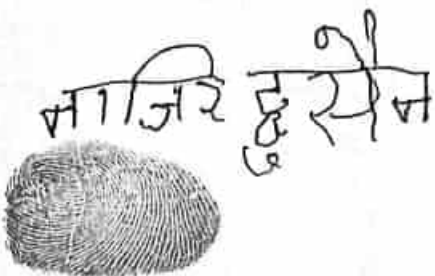 नाजिर हुसैन